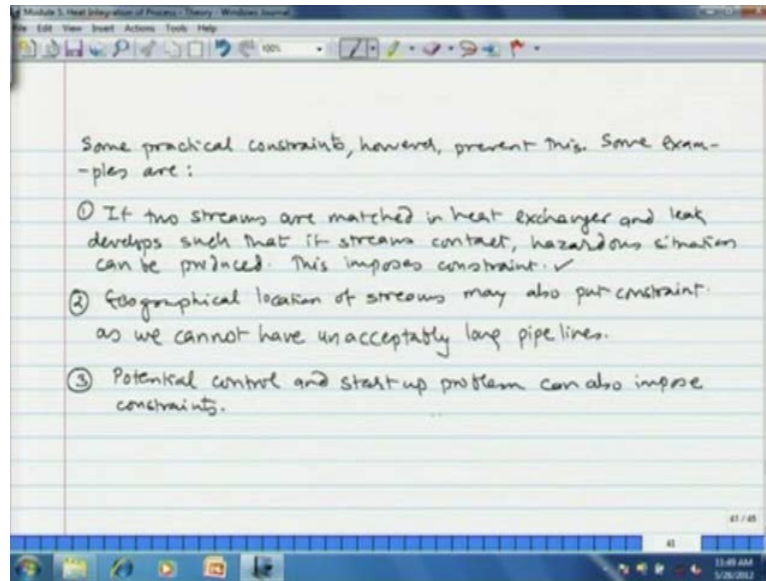 Module 5. Heat Integration of Process - Theory - Windows Journal
File Edit View Insert Actions Tools Help
100%
Some practical constraints, however, prevent this. Some exam-
-ples are :
① If two streams are matched in heat exchanger and leak
develops such that if streams contact, hazardous situation
can be produced. This imposes constraint. ✓
② Geographical location of streams may also put constraint.
as we cannot have unacceptably long pipelines.
③ Potential control and start up problem can also impose
constraints.
41 / 45
41
11:49 AM
5/28/2012